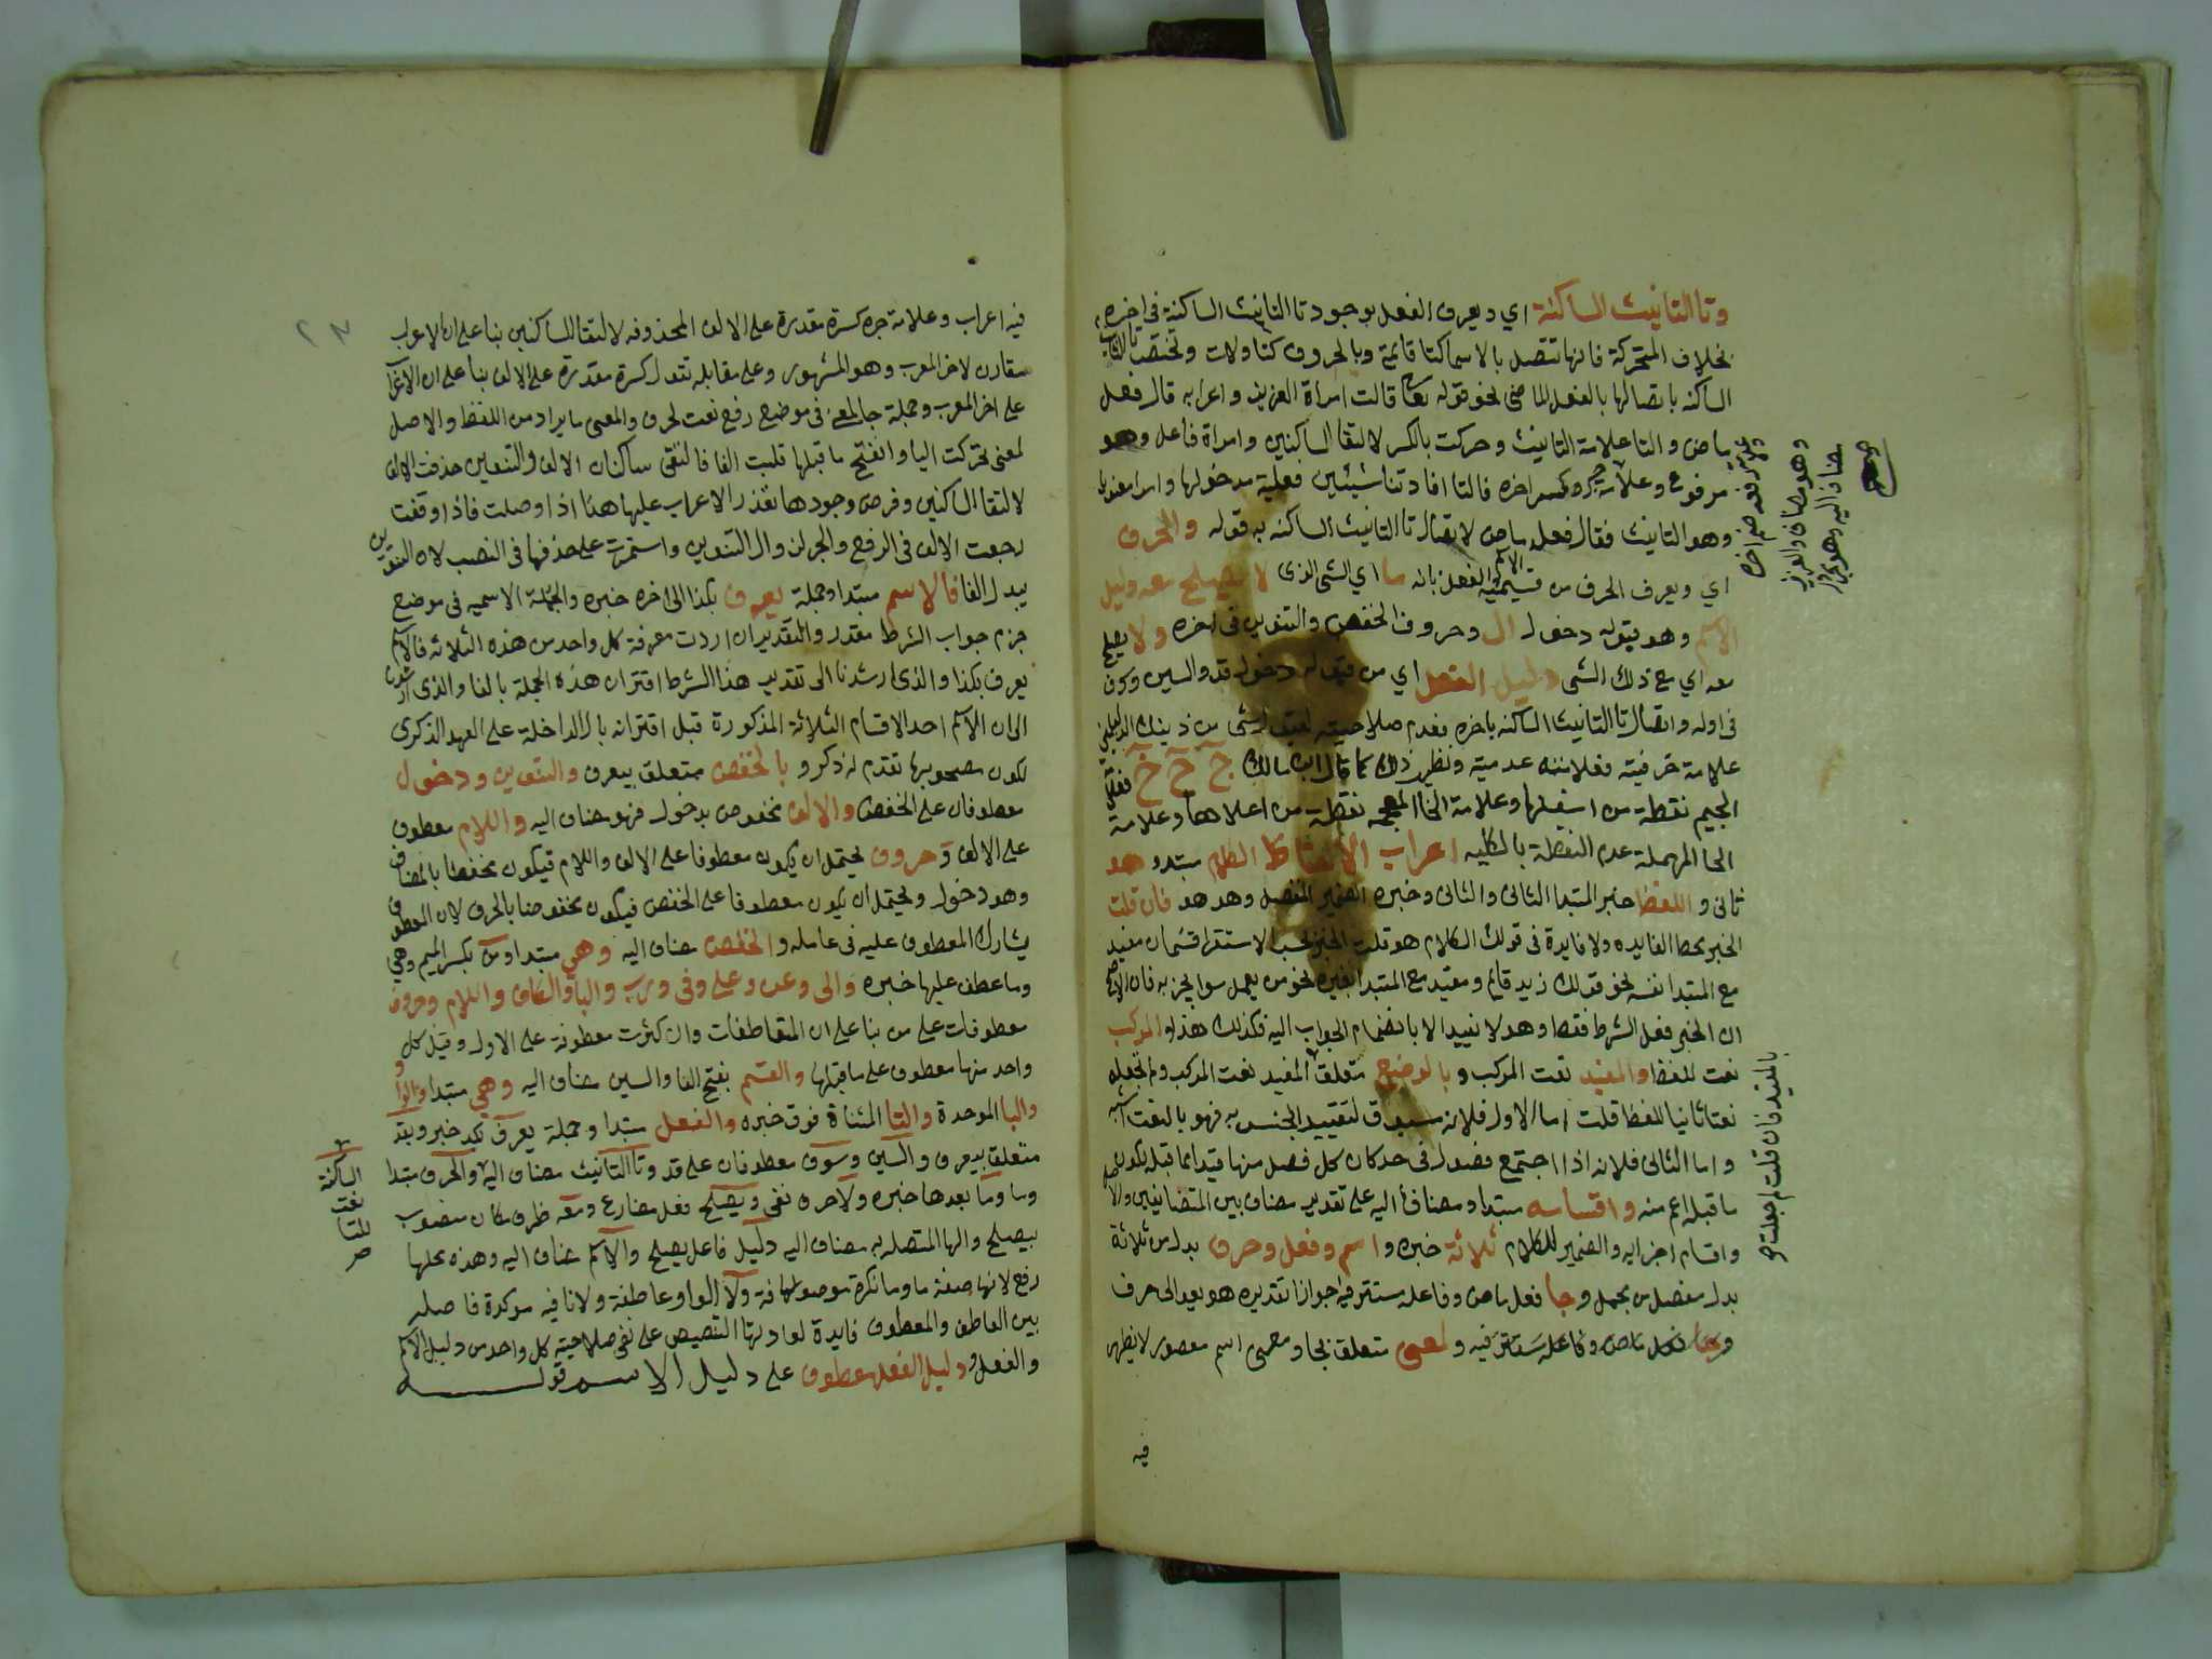 وتا التانيث الساكنة اي ويعرف الفعل بوجود تا التانيث الساكنة في اخره
بخلاف المتحركة فانها تتصل بالاسما كتا قائمة وبالحروف كتا ولات وتختص تا التانيث
الساكنه باتصالها بالفعل الماضي نحو قوله تعا قالت امراة العزيز واعرابه قال فعل
ماض والتا علامة التانيث وحركت بالكسر لالتقا الساكنين وامراة فاعل وهو
مرفوع وعلامة جره كسر اخره فالتا افادتنا شيئين فعلية مدخولها وامرا معنويا
وهو التانيث فقال فعل ماض لاتصال تا التانيث الساكنه به قوله والحرف
اي ويعرف الحرف من قسيميه الاسم والفعل بانه ما اي الشي الذي لا يصلح معه دليل
الاسم وهو قبوله دخول ال وحروف الخفض والتنوين في اخره ولا يصلح
معه اي مع ذلك الشي دليل الفعل اي من قبوله دخول قد والسين وسوف
في اوله واتصال تا التانيث الساكنه باخره فعدم صلاحيته لقبول شي من ذينك الدليلين
علامة حرفيته فعلامته عدمية ونظير ذلك كما قال ابن مالك ج ح خ فعلامة
الجيم نقطة من اسفلها وعلامة الخا المعجمه نقطة من اعلاها وعلامة
الحا المهملة عدم النقطة بالكليه اعراب الالفاظ الكلام مبتدا وهو
ثاني واللفظ خبر المبتدا الثاني والثاني وخبره الضمير المنفصل وهو هو فان قلت
الخبر محط الفايده ولا فايدة في قولك الكلام هو قلت الخبر بحسب الاستقرا قسمان مفيد
مع المبتدا نفسه نحو قولك زيد قايم ومفيد مع المبتدا بغيره نحو من يعمل سوا يجز به فان الاصح
ان الخبر فعل الشرط فقط وهو لا يفيد الا بانضمام الجواب اليه فكذلك هذا والمركب
نعت للفظ والمفيد نعت المركب وبالوضع متعلق بالمفيد نعت المركب ولم تجعله
نعتا ثانيا للفظ قلت اما الاول فلانه مسوق لتقييد الجنس به فهو بالنعت اشبه
واما الثاني فلانه اذا اجتمع فصول في حد كان كل فصل منها قيدا لما قبله لكون
ما قبله اعم منه واقسامه مبتدا ومضاف اليه على تقدير مضاف بين المتضايفين والاصل
واقسام اجزايه والضمير للكلام ثلاثة خبره واسم وفعل وحرف بدل من ثلاثة
بدل مفصل من مجمل وجا فعل ماض وفاعله مستتر فيه جوازا تقديره هو يعود الى حرف
فعل ماض وفاعله مستتر فيه ولمعنى متعلق بجا ومعنى اسم مقصور لا يظهر
فيه
وعلامة رفعه ضم اخره
وهو مضاف والعزيز
مضاف اليه وهو مجرور
بالمفيد فان قلت لم جعلت
٢٣
فيه اعراب وعلامة جره كسرة مقدرة على الالف المحذوفه لالتقا الساكنين بنا على ان الاعراب
مقارن لاخر المعرب وهو المشهور وعلى مقابله تقول كسرة مقدرة على الالف بنا على ان الاعراب
على اخر المعرب وجملة جا لمعنى في موضع رفع نعت لحرف والمعنى ما يراد من اللفظ والاصل
لمعنى تحركت اليا وانفتح ما قبلها قلبت الفا فالتقى ساكنان الالف والتنوين حذفت الالف
لالتقا الساكنين وفرض وجودها تقدر الاعراب عليها هذا اذا وصلت فاذا وقفت
رجعت الالف في الرفع والجر لزوال التنوين واستمرت على حذفها في النصب لان التنوين
يبدل الفا فالاسم مبتدا وجملة يعرف بكذا الى اخره خبره والجملة الاسميه في موضع
جزم جواب الشرط مقدر والتقدير ان اردت معرفة كل واحد من هذه الثلاثه فالاسم
يعرف بكذا والذي ارشدنا الى تقدير هذا الشرط اقتران هذه الجملة بالفا والذي ارشدنا
الى ان الاسم احد الاقسام الثلاثة المذكورة قبل اقترانه بال الداخلة على العهد الذكري
لكون مصحوبها تقدم له ذكر وبالخفض متعلق بيعرف والتنوين ودخول
معطوفان على الخفض والالف مخفوض بدخول فهو مضاف اليه واللام معطوف
على الالف وحروف يحتمل ان يكون معطوفا على الالف واللام فيكون مخفوضا بالمضاف
وهو دخول ويحتمل ان يكون معطوفا على الخفض فيكون مخفوضا بالحرف لان المعطوف
يشارك المعطوف عليه في عامله والخفض مضاف اليه وهي مبتدا ومن بكسر الميم وهي
وما عطف عليها خبره والى وعن وعلى وفي ورب والبا والكاف واللام وحروف
معطوفات على من بنا على ان المتعاطفات وان كثرت معطوفة على الاول وقيل كل
واحد منها معطوف على ما قبلها والقسم بفتح القا والسين مضاف اليه وهي مبتدا والواو
والبا الموحدة والتا المثناة فوق خبره والفعل مبتدا وجملة يعرف بكد خبر وبقد
متعلق بيعرف والسين وسوف معطوفان على قد وتا التانيث مضاف اليه والحرف مبتدا
وما وما بعدها خبره ولا حرف نفي ويصلح فعل مضارع ومعه ظرف مكان منصوب
بيصلح والها المتصله به مضاف اليه دليل فاعل يصلح والاسم مضاف اليه وهذه محلها
رفع لانها صفة ما وما نكرة موصوفة ولا الواو عاطفة ولا نافيه موكدة فاصله
بين العاطف والمعطوف فايدة اعادتها التنصيص على نفي صلاحية كل واحد من دليل الاسم
والفعل ودليل الفعل معطوف على دليل الاسم قوله
الساكنة
نعت
للتا